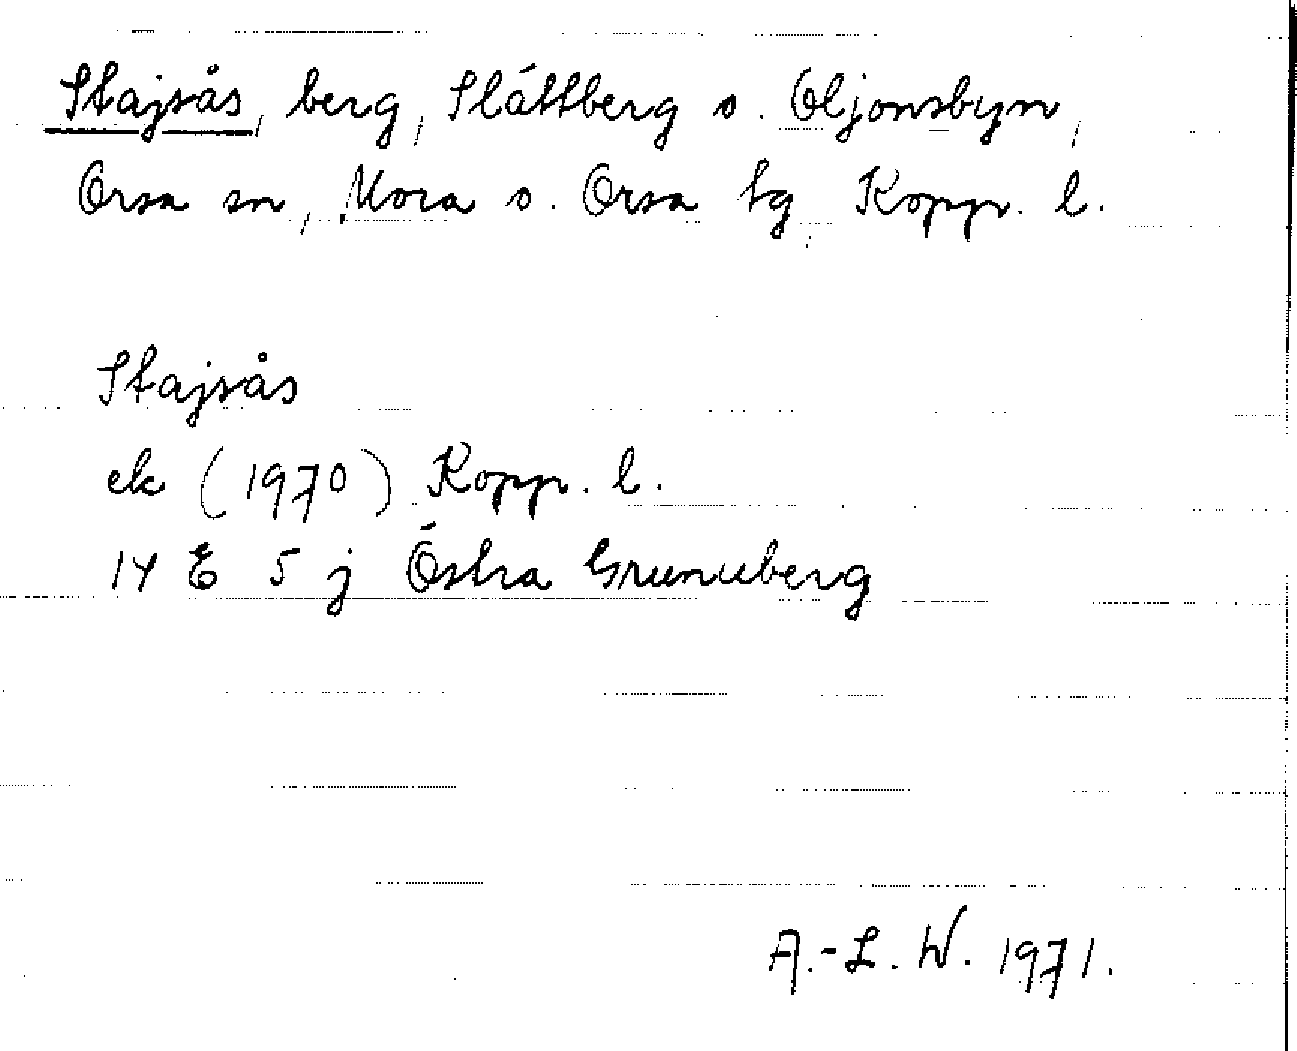 Stajsås, berg, Slättberg o. Oljonsbyn,
Orsa sn, Mora o. Orsa tg, Kopp. l.
Stajsås
ek (1970) Kopp. l.
14 E 5 j Östra Grunuberg
A.-L. W. 1971.